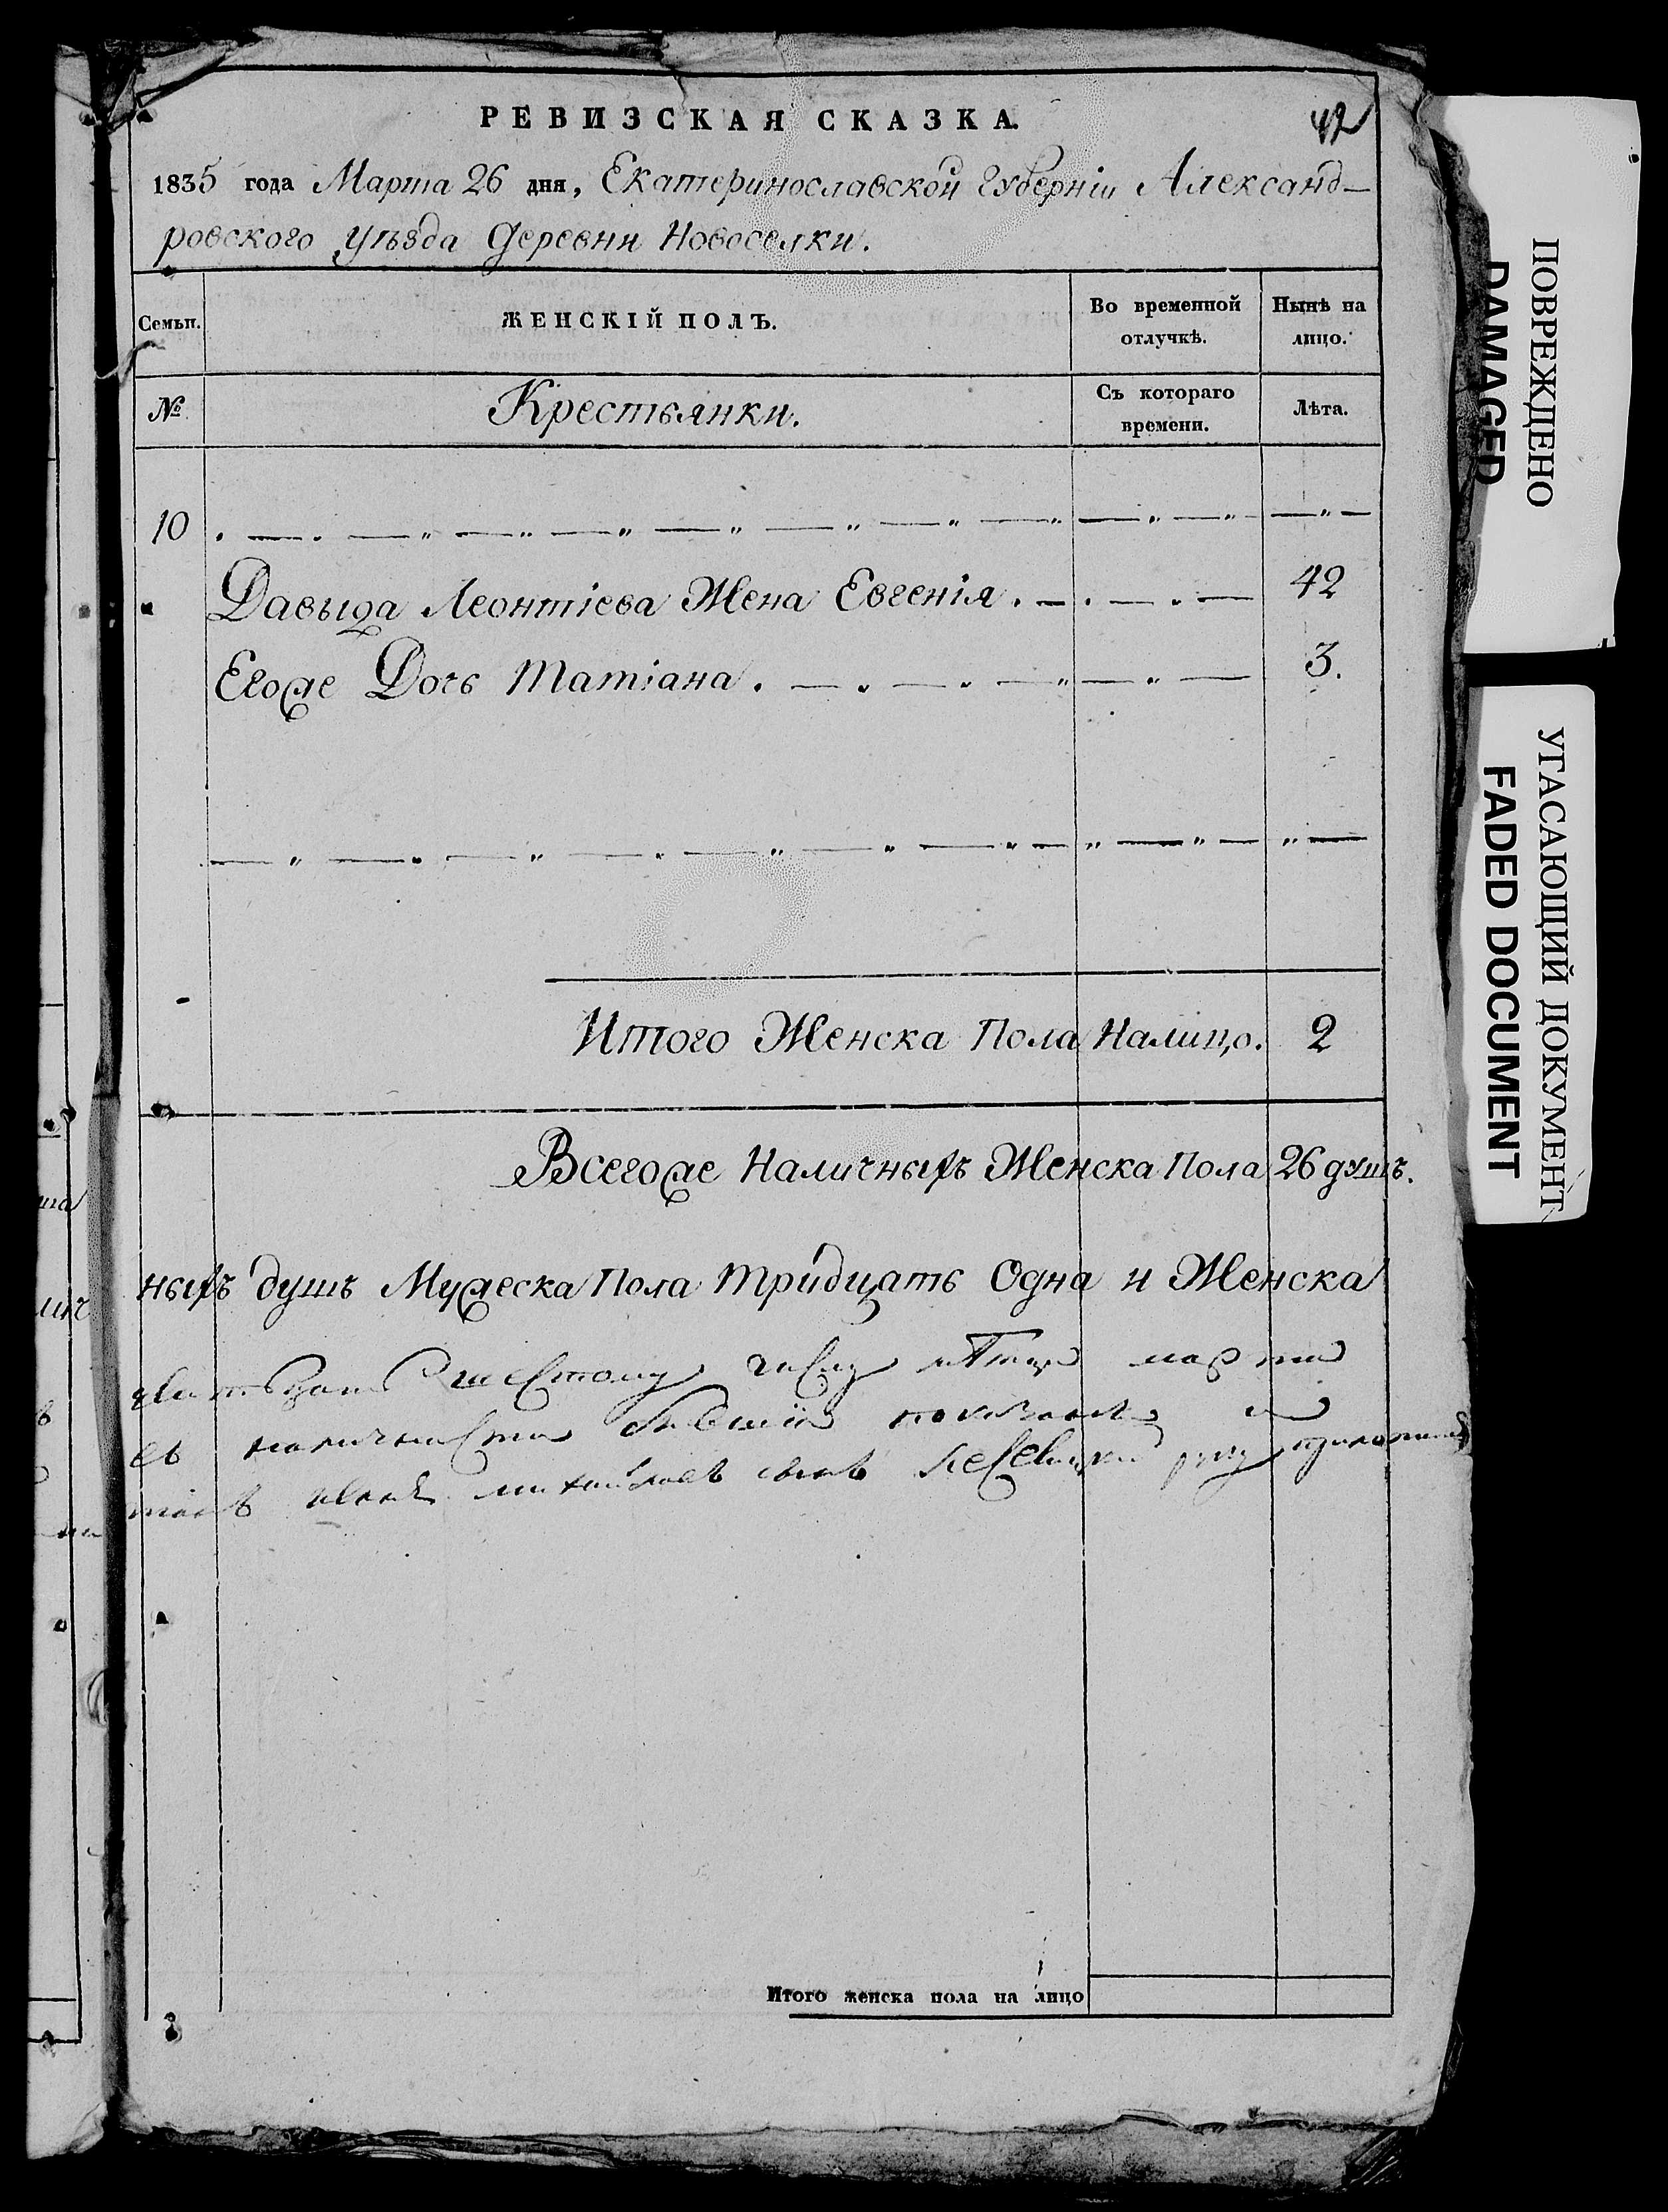 РЕВИЗСКАЯ СКАЗКА.
42
1835 года Марта 26 дня, Екатеринославской Губерніи Александ-
ровского уѣзда Деревни Новоселки.
Семьи.
ЖЕНСКІЙ ПОЛЪ.
Во временной отлучкѣ.
Нынѣ на лицо.
№
Крестьянки.
Съ котораго времени.
Лѣта.
10
Давыда Леонтіева Жена Евгенія. 42
Егоже Дочь Татіана. 3.
Итого Женска Пола Налицо. 2
Всегоже Наличныхъ Женска Пола 26 душъ.
ныхъ душъ Мужеска Пола тридцать Одна и Женска
шестому числу марта
Итого женска пола на лицо
ПОВРЕЖДЕНО
DAMAGED
УГАСАЮЩИЙ ДОКУМЕНТ
FADED DOCUMENT